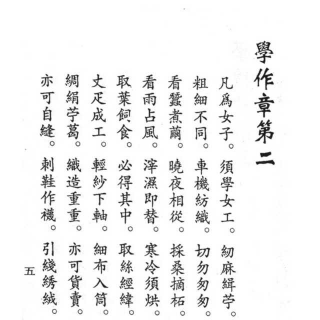 學作章第二
凡為女子。須學女工。紉麻緝苧。
粗細不同。車機紡織。切勿匆匆。
看蠶煮繭。曉夜相從。採桑摘柘。
看雨占風。滓濕即替。寒冷須烘。
取葉飼食。必得其中。取絲經緯。
丈疋成工。輕紗下軸。細布入筒。
綢絹苧葛。織造重重。亦可貨賣。
亦可自縫。刺鞋作襪。引綫綉絨。
五